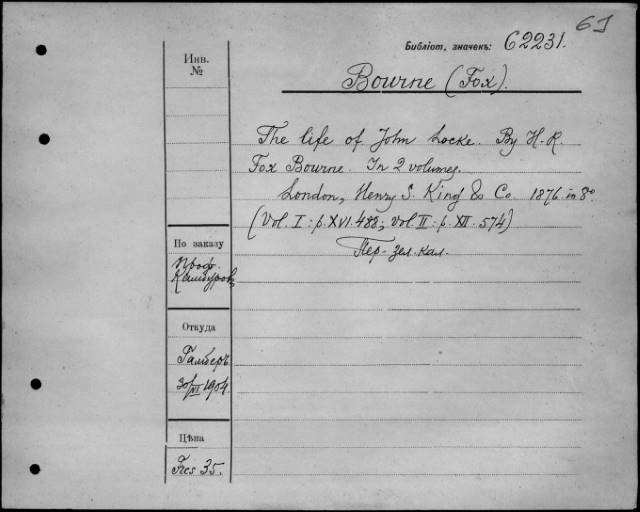 6J
Библіот. значекъ: 62231.
Bourne (Fox).
Инв.
№
The life of John Locke. By H. R.
Fox Bourne. In 2 volumes.
London, Henry S. King & Co. 1876. in 8°
(Vol. I: p. XVI. 488; vol. II: p. XII. 574)
Пер. зел. кал.
По заказу
Проф.
Откуда
30/XI 1904
Цѣна
Frcs 35.